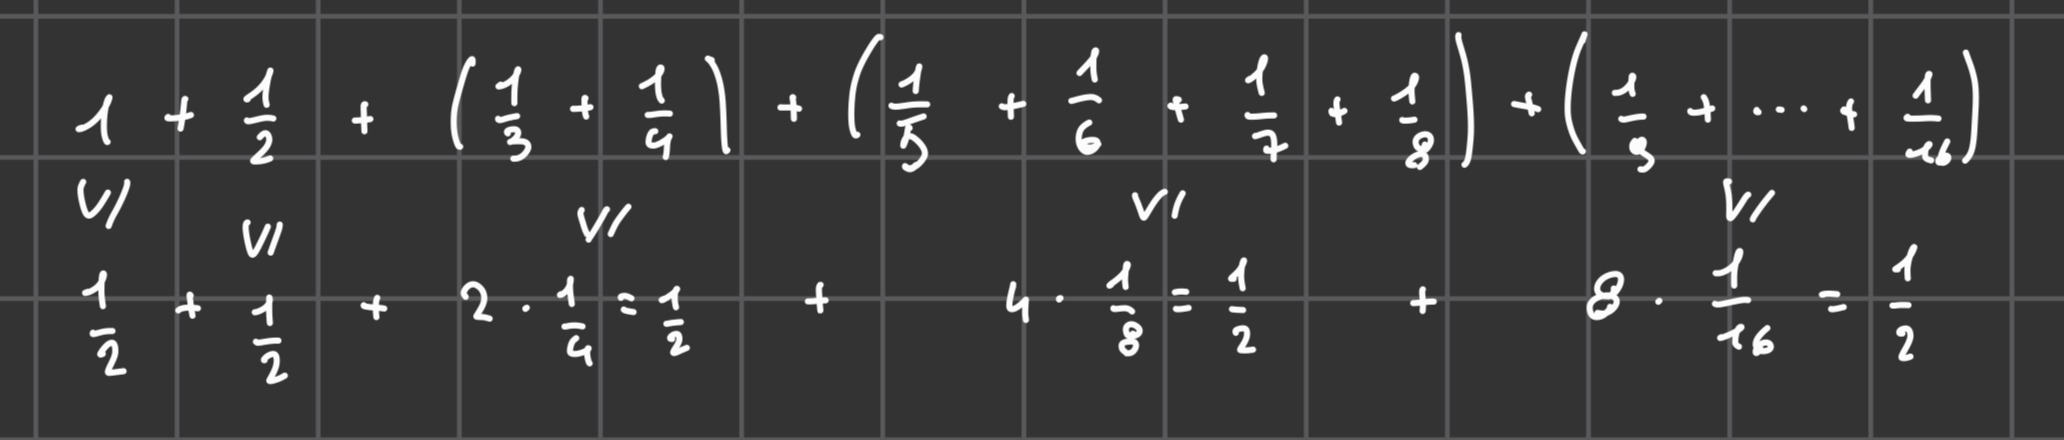 1 + 1/2 + (1/3 + 1/4) + (1/5 + 1/6 + 1/7 + 1/8) + (1/9 + ... + 1/16)
V/ V/ V/ V/ V/
1/2 + 1/2 + 2 · 1/4 = 1/2 + 4 · 1/8 = 1/2 + 8 · 1/16 = 1/2